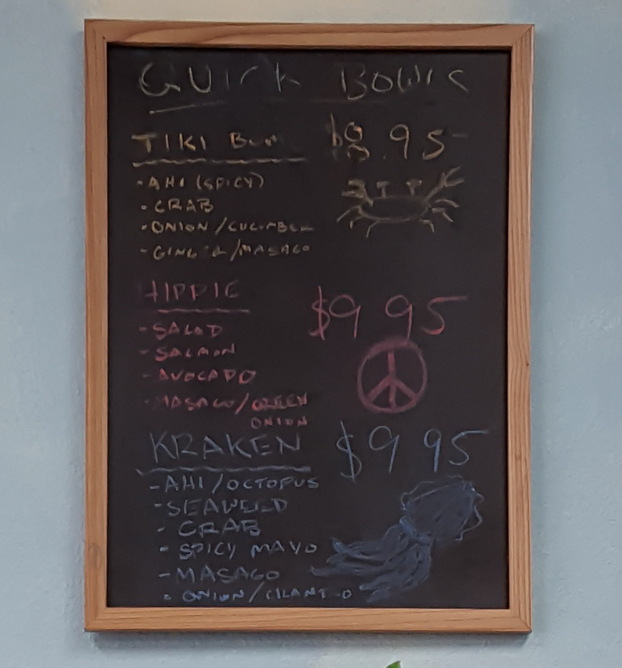 QUICK BOWLS
TIKI BUM $8.95
- AHI (SPICY)
- CRAB
- ONION/CUCUMBER
- GINGER/MASAGO
HIPPIE $9.95
- SALAD
- SALMON
- AVOCADO
- MASAGO/GREEN
ONION
KRAKEN $9.95
- AHI/OCTOPUS
- SEAWEED
- CRAB
- SPICY MAYO
- MASAGO
- ONION/CILANTRO